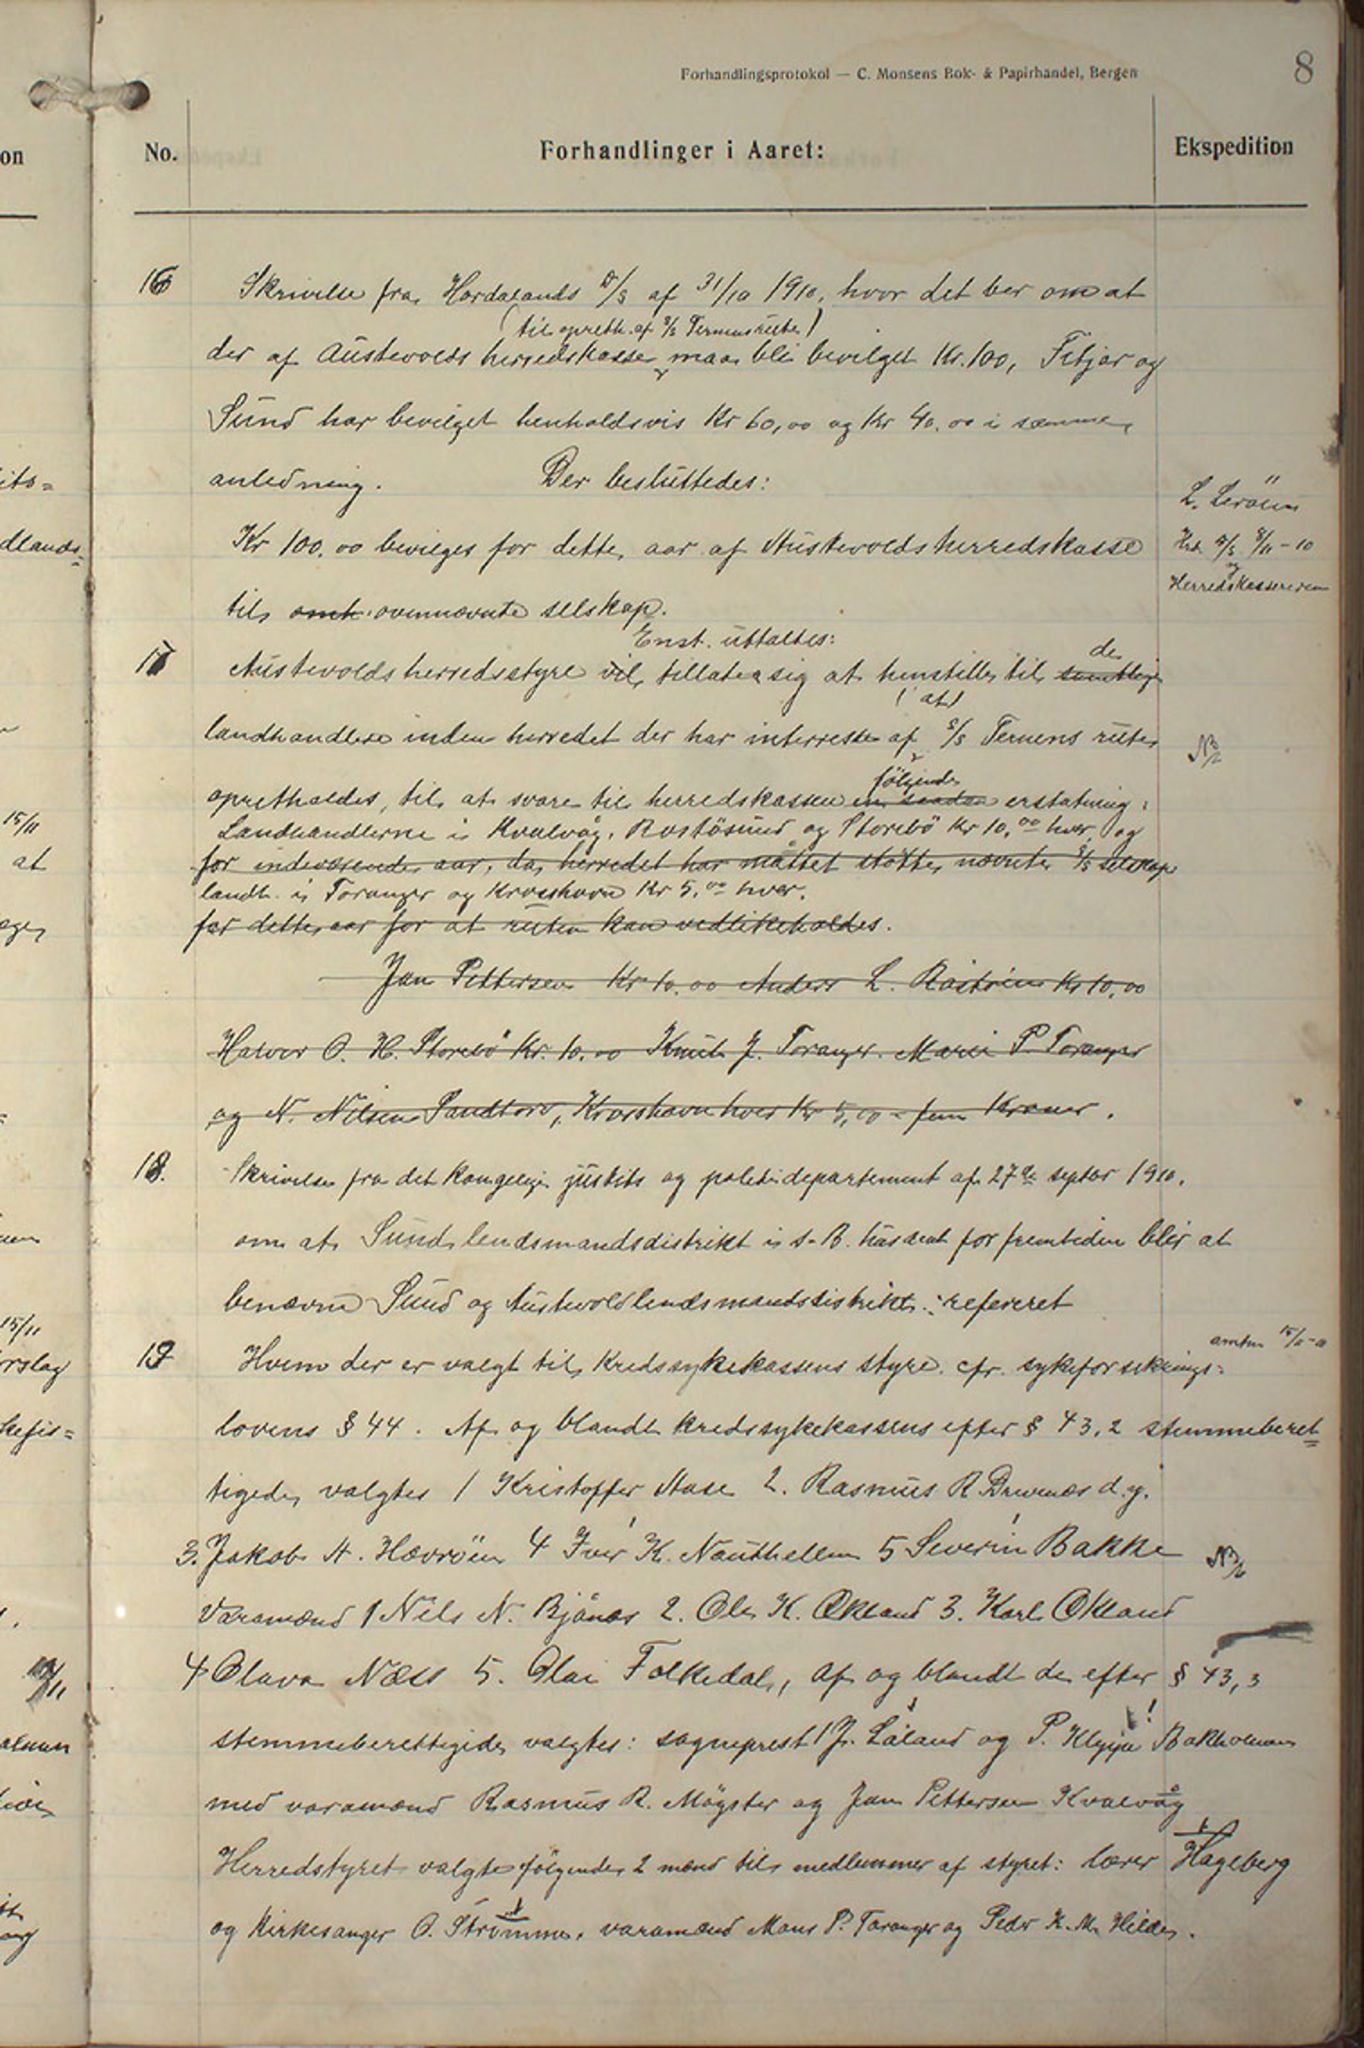 Forhandlingsprotokol — C. Monsens Bok- & Papirhandel, Bergen
8
No.
Forhandlinger i Aaret:
Ekspedition
16 Skrivelse fra Hordalands D/S af 31/10 1910, hvor det ber om at
(til opreth. af S/S Ternens ruter)
der af Austevolds herredskasse maa bli bevilget Kr. 100, Fitjar og
Sund har bevilget henholdsvis Kr 60,00 og Kr 40.00 i samme
anledning. Der besluttedes:
L. Leröen
Kr 100.00 bevilges for dette aar af Austevolds herredskasse
Hrd. D/S 8/11-10
og
Herredskassereren
til omh. ovennævnte selskap.
Enst. uttaltes:
17 Austevolds herredsstyre vil tillate sig at henstille til samtlige
de
(at)
landhandlere inden herredet der har interresse af S/S Ternens ruter
følgende
opretholdes, til at svare til herredskassen en saadan erstatning:
Landhandlerne i Kvalvåg, Rostösund og Storebö Kr 10,00 hver, og
for indeværende aar, da herredet har måttet støtte nævnte S/S selskap
landh. i Toranger og Krosshavn Kr 5,00 hver.
for dette aar for at ruten kan vedlikeholdes.
Jan Pettersen Kr 10.00 Anders L. Rostöen Kr 10,00
Halvor O. H. Storebö Kr. 10.00 Knut J. Toranger Marie P. Toranger
og N. Nilsen Sandtorv, Krosshavn hver Kr 5,00 - fem Kroner.
18. Skrivelse fra det kongelige justits og politidepartement af 27de septbr 1910.
om at Sund lendsmandsdistrikt i S. B. hus amt for fremtiden blir at
benævne Sund og Austevold lendsmandsdistrikt: refereret
amtm 15/11-10
19 Hvem der er valgt til Kredssykekassens styre cfr. sykeforsikrings=
lovens § 44. Af og blandt kredssykekassens efter § 43,2 stemmeberet=
tigede valgtes 1 Kristoffer Aase 2. Rasmus R Drivenæs d.y.
3. Jakob A. Hævröen 4 Iver K. Nauthellen 5 Severin Bakke
Varamænd 1 Nils N. Bjånæs 2. Ole K. Økland 3. Karl Økland
4 Olava Næss 5. Olai Folkedal, Af og blandt de efter § 43,3
stemmeberettigede valgtes: sogneprest J. Låland og P. Kleppe Bakholmen
med varamænd Rasmus R. Møgster og Jan Pettersen Kvalvåg
Herredstyret valgte følgende 2 mænd til medlemmer af styret: lærer Hageberg
og kirkesanger O. Strömme, varamænd Mons P. Toranger og Peder K. M. Hilde.